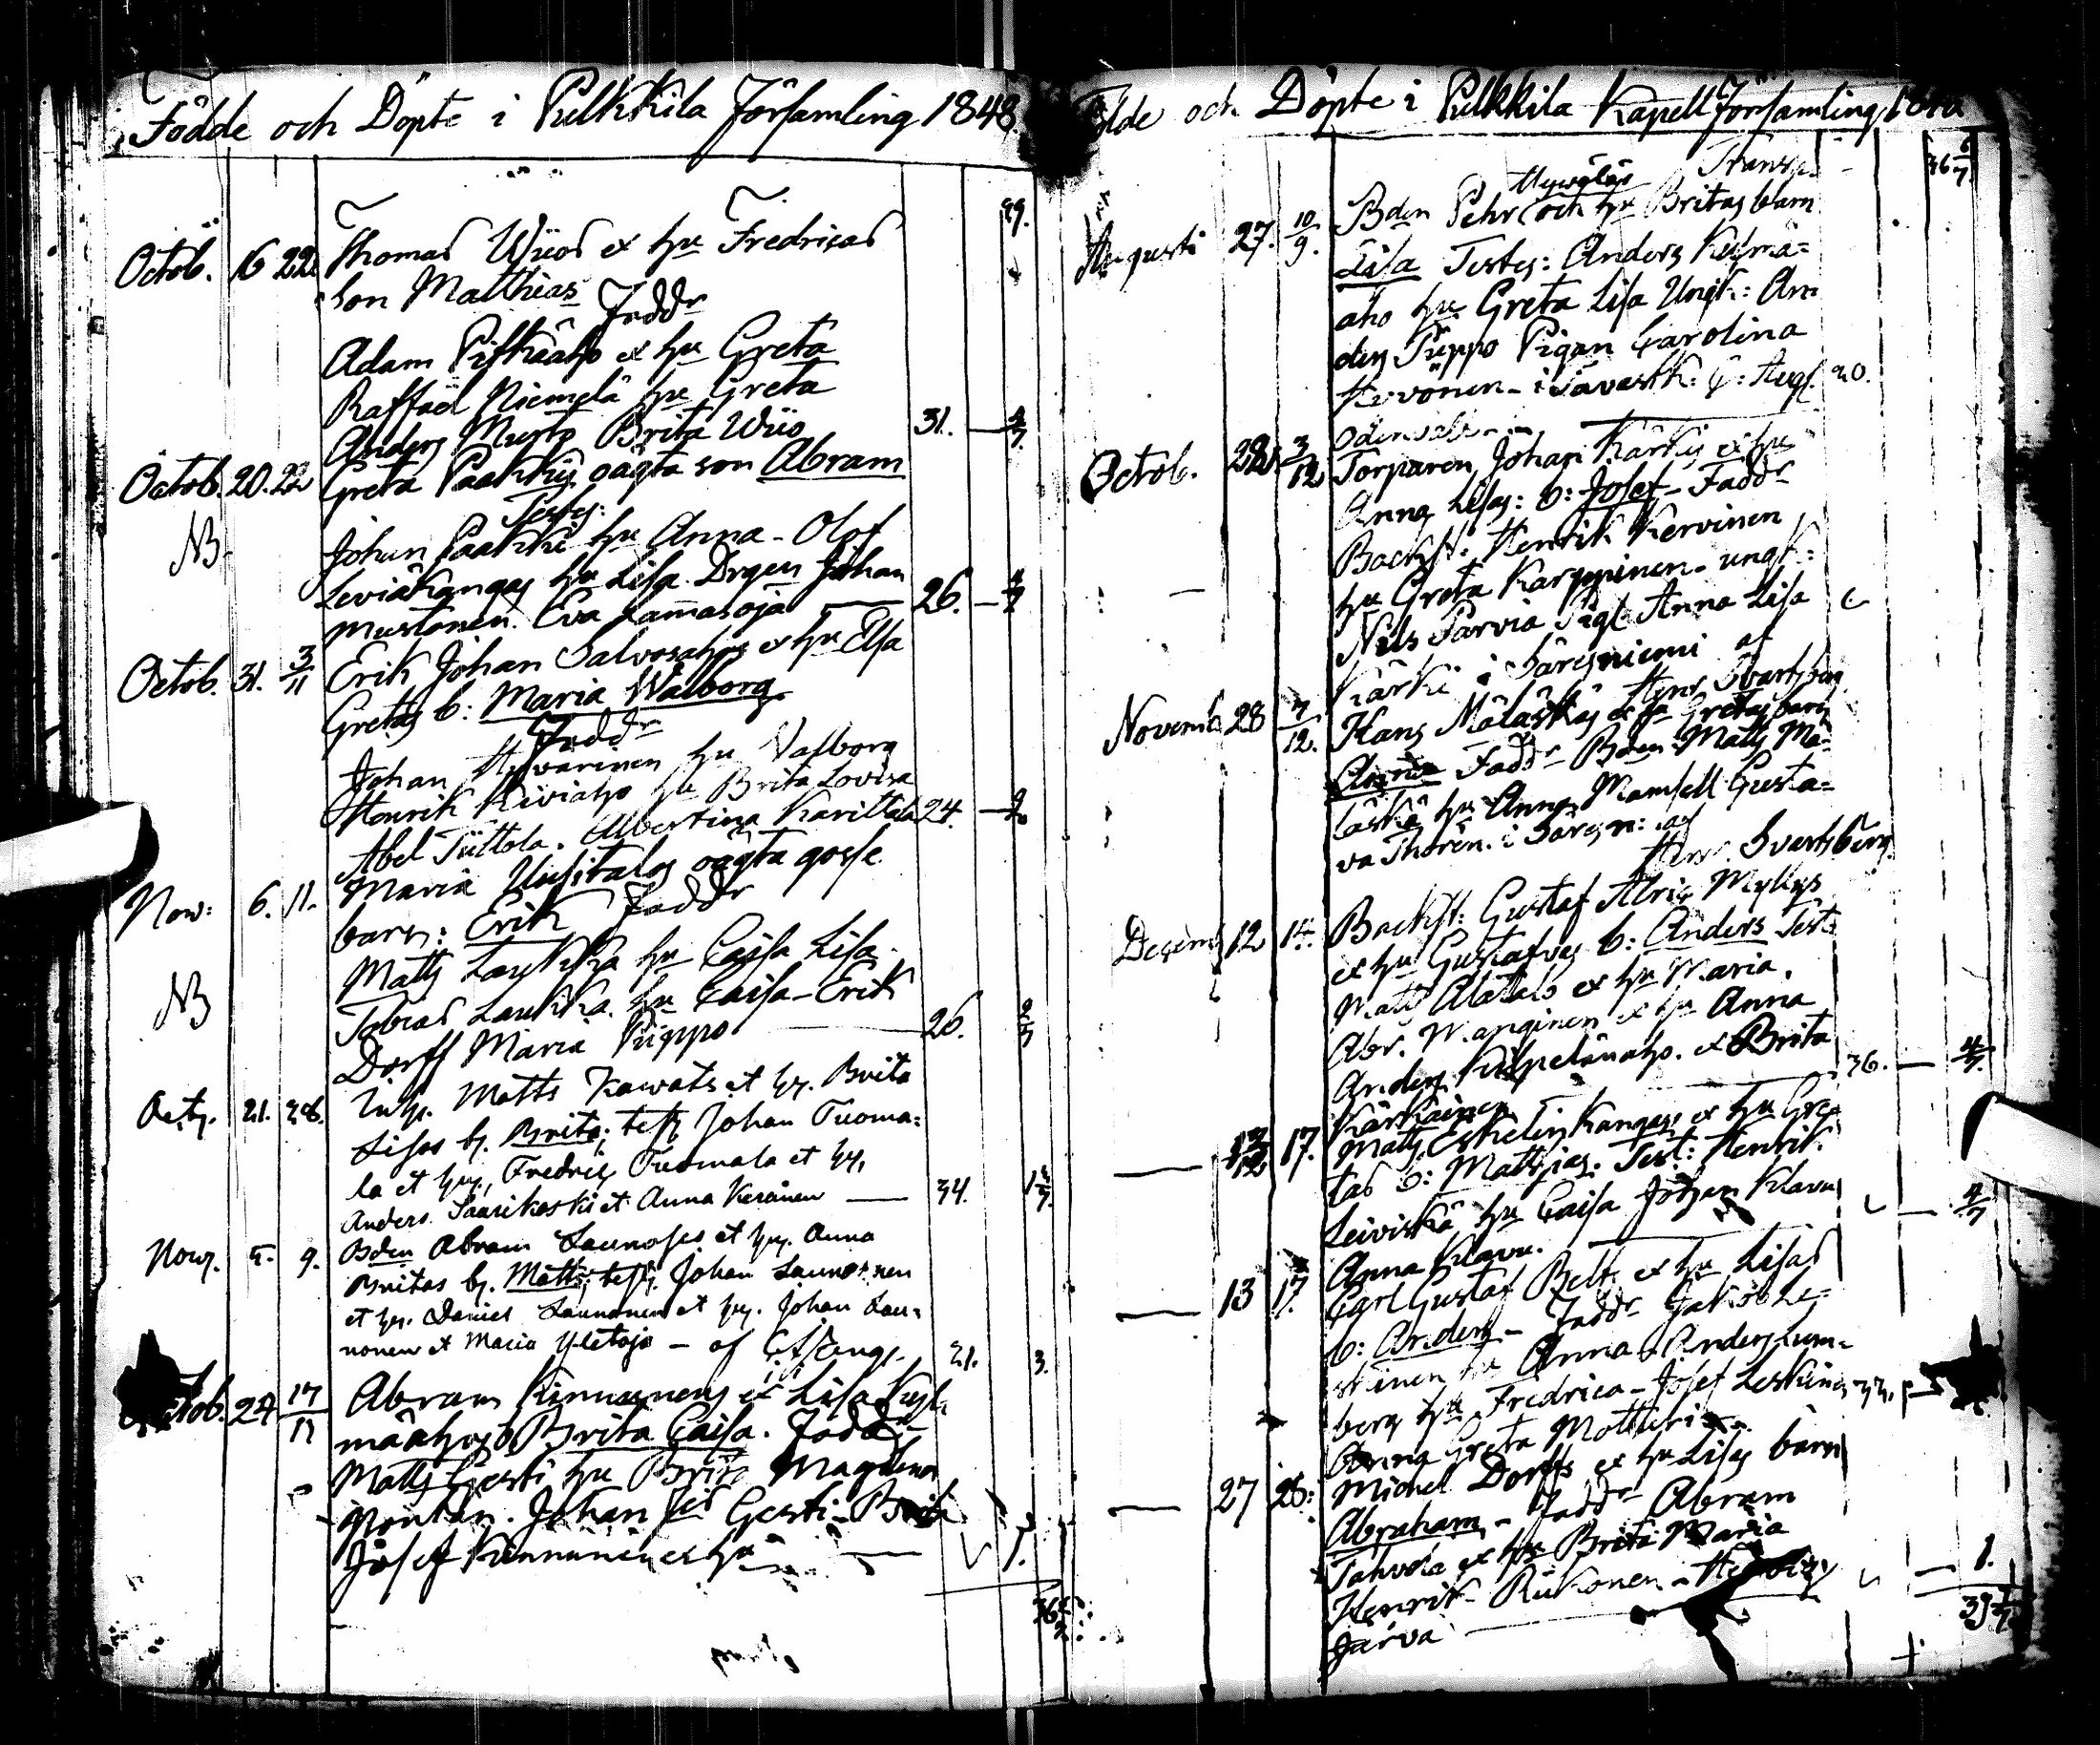 Födde och Döpte i Pulkkila Församling 1848
99.
Octob. 16 22 Thomas Wiios et hu Fredricas
son Matthias
Faddr
Adam Pitkäaho et hu Greta
Raffael Niemelä hu Greta
Anders Musto Brita Wiio 31. —
Octob. 20. 22 Greta Paakkis oägta son Abram
Testes:
NB. Johan Paakki hu Anna - Olof
Leviäkangas hu Lisa. Drgen Johan
Mustonen. Eva Lamasoja — 26. —
Octob. 31. 3/11 Erik Johan Salvosahos et hu Elsa
Gretas b: Maria Walborg
Faddr
Johan Hyvärinen hu Valborg
Henrik Kiviaho hu Brita Lovisa
Abel Tiittola. Albertina Karittala 24. —
Nov: 6. 11. Maria Uusitalos oägta gosse
barn: Erik Faddr
Matts Laukka hu Caisa Lisa.
NB Tobias Laukka. hu Caisa - Erik
Dorff Maria Piippo — 26.
Octb. 21. 28. Inh. Matts Kawats et hu. Brita
Lisas b. Brita; test Johan Tuoma=
la et hu., Fredric Tuomala et hu,
Anders Saarikoski et Anna Keränen — 34.
Nov. 5. 9. Bden Abram Launoses et hu. Anna
Britas b. Matts; test. Johan Launonen
et hu. Daniel Launonen et hu. Johan Lau=
nonen et Maria Yletojo — af 21. 3.
Octob. 24 17/12 Abram Kinnunens et Lisa
määhos b Brita Caisa. Faddr
Matts Gesti hu Brita Magdlena
Johan Gesti - Brita
Josef Kinnunen et hu —
Födde och Döpte i Pulkkila Kapell Församling
Transp. 36
Augusti 27. 10/9. Bden Pehr och hu Britas barn
Lisa Testes: Anders Kylmä=
aho hu Greta Lisa Ungk: An=
ders Piippo Pigan Carolina
i Savastk: 20.
Octob. 22 3/12 Torparen Johan Kärkis et hu
Anna Lisas: b: Josef - Faddr
Backst: Henrik Kervinen
hu Greta Karppinen - ungk:
Nils Parvia Pigl Anna Lisa
Kärki i Säresniemi af
Novemb 28 4/12. Hans Mälaskäs et hu Gretas barn
Anna Faddr Bden Matts Mä=
läskä hu Anna, Mamsell Gusta=
va Thorén. i Säresn: af
Svartsberg.
Decemb 12 14. Backst: Gustaf Abric Myllys
et hu Gustafvas b: Anders Test
Matts Alatalo et hu Maria.
Abr. Wanginen et hu Anna
Anders Kilpelänaho. et Brita
Kärkäinen 36. —
— 13 17. Matts Eskelinkangas et hu Gre=
tas b: Mathias. Test: Henrik
Leiviskä hu Caisa Johan Klavu
Anna Klavu.
— 13 17. Carl Gustaf Belts et hu Lisas
b: Anders - Faddr Jakob Le=
skinen hu Anna - Anders Lum=
berg hu Fredrica - Josef Leskinen
Anna Greta Motturi
— 27 28: Michel Dorffs et hu Lisas barn
Abraham - Faddr Abram
Tahvola et hu Brita Maria
Henrik - Riikonen -
Järva — 1.